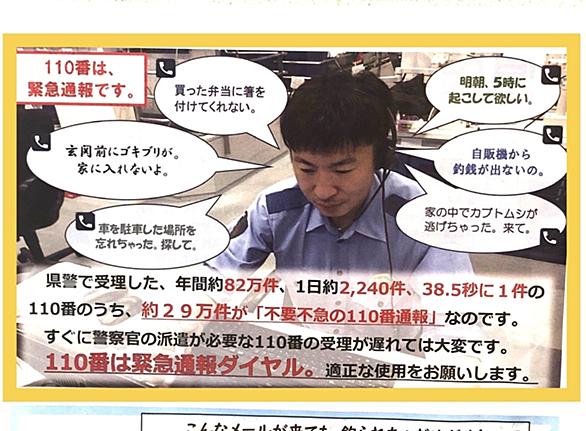 110番は、
緊急通報です。
買った弁当に箸を
付けてくれない。
明朝、5時に
起こして欲しい。
玄関前にゴキブリが。
家に入れないよ。
自販機から
釣銭が出ないの。
車を駐車した場所を
忘れちゃった。探して。
家の中でカブトムシが
逃げちゃった。来て。
県警で受理した、年間約82万件、1日約2,240件、38.5秒に1件の
110番のうち、約29万件が「不要不急の110番通報」なのです。
すぐに警察官の派遣が必要な110番の受理が遅れては大変です。
110番は緊急通報ダイヤル。適正な使用をお願いします。